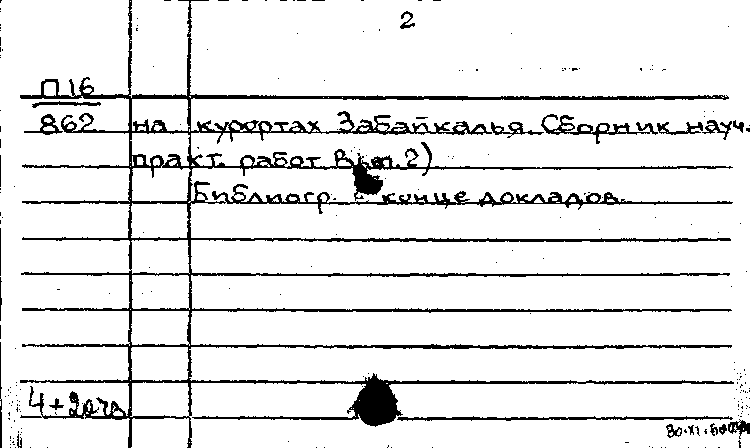 2
П 16
862 на курортах Забайкалья. Сборник науч.
практ. работ. Вып. 2)
Библиогр. в конце докладов.
4+2